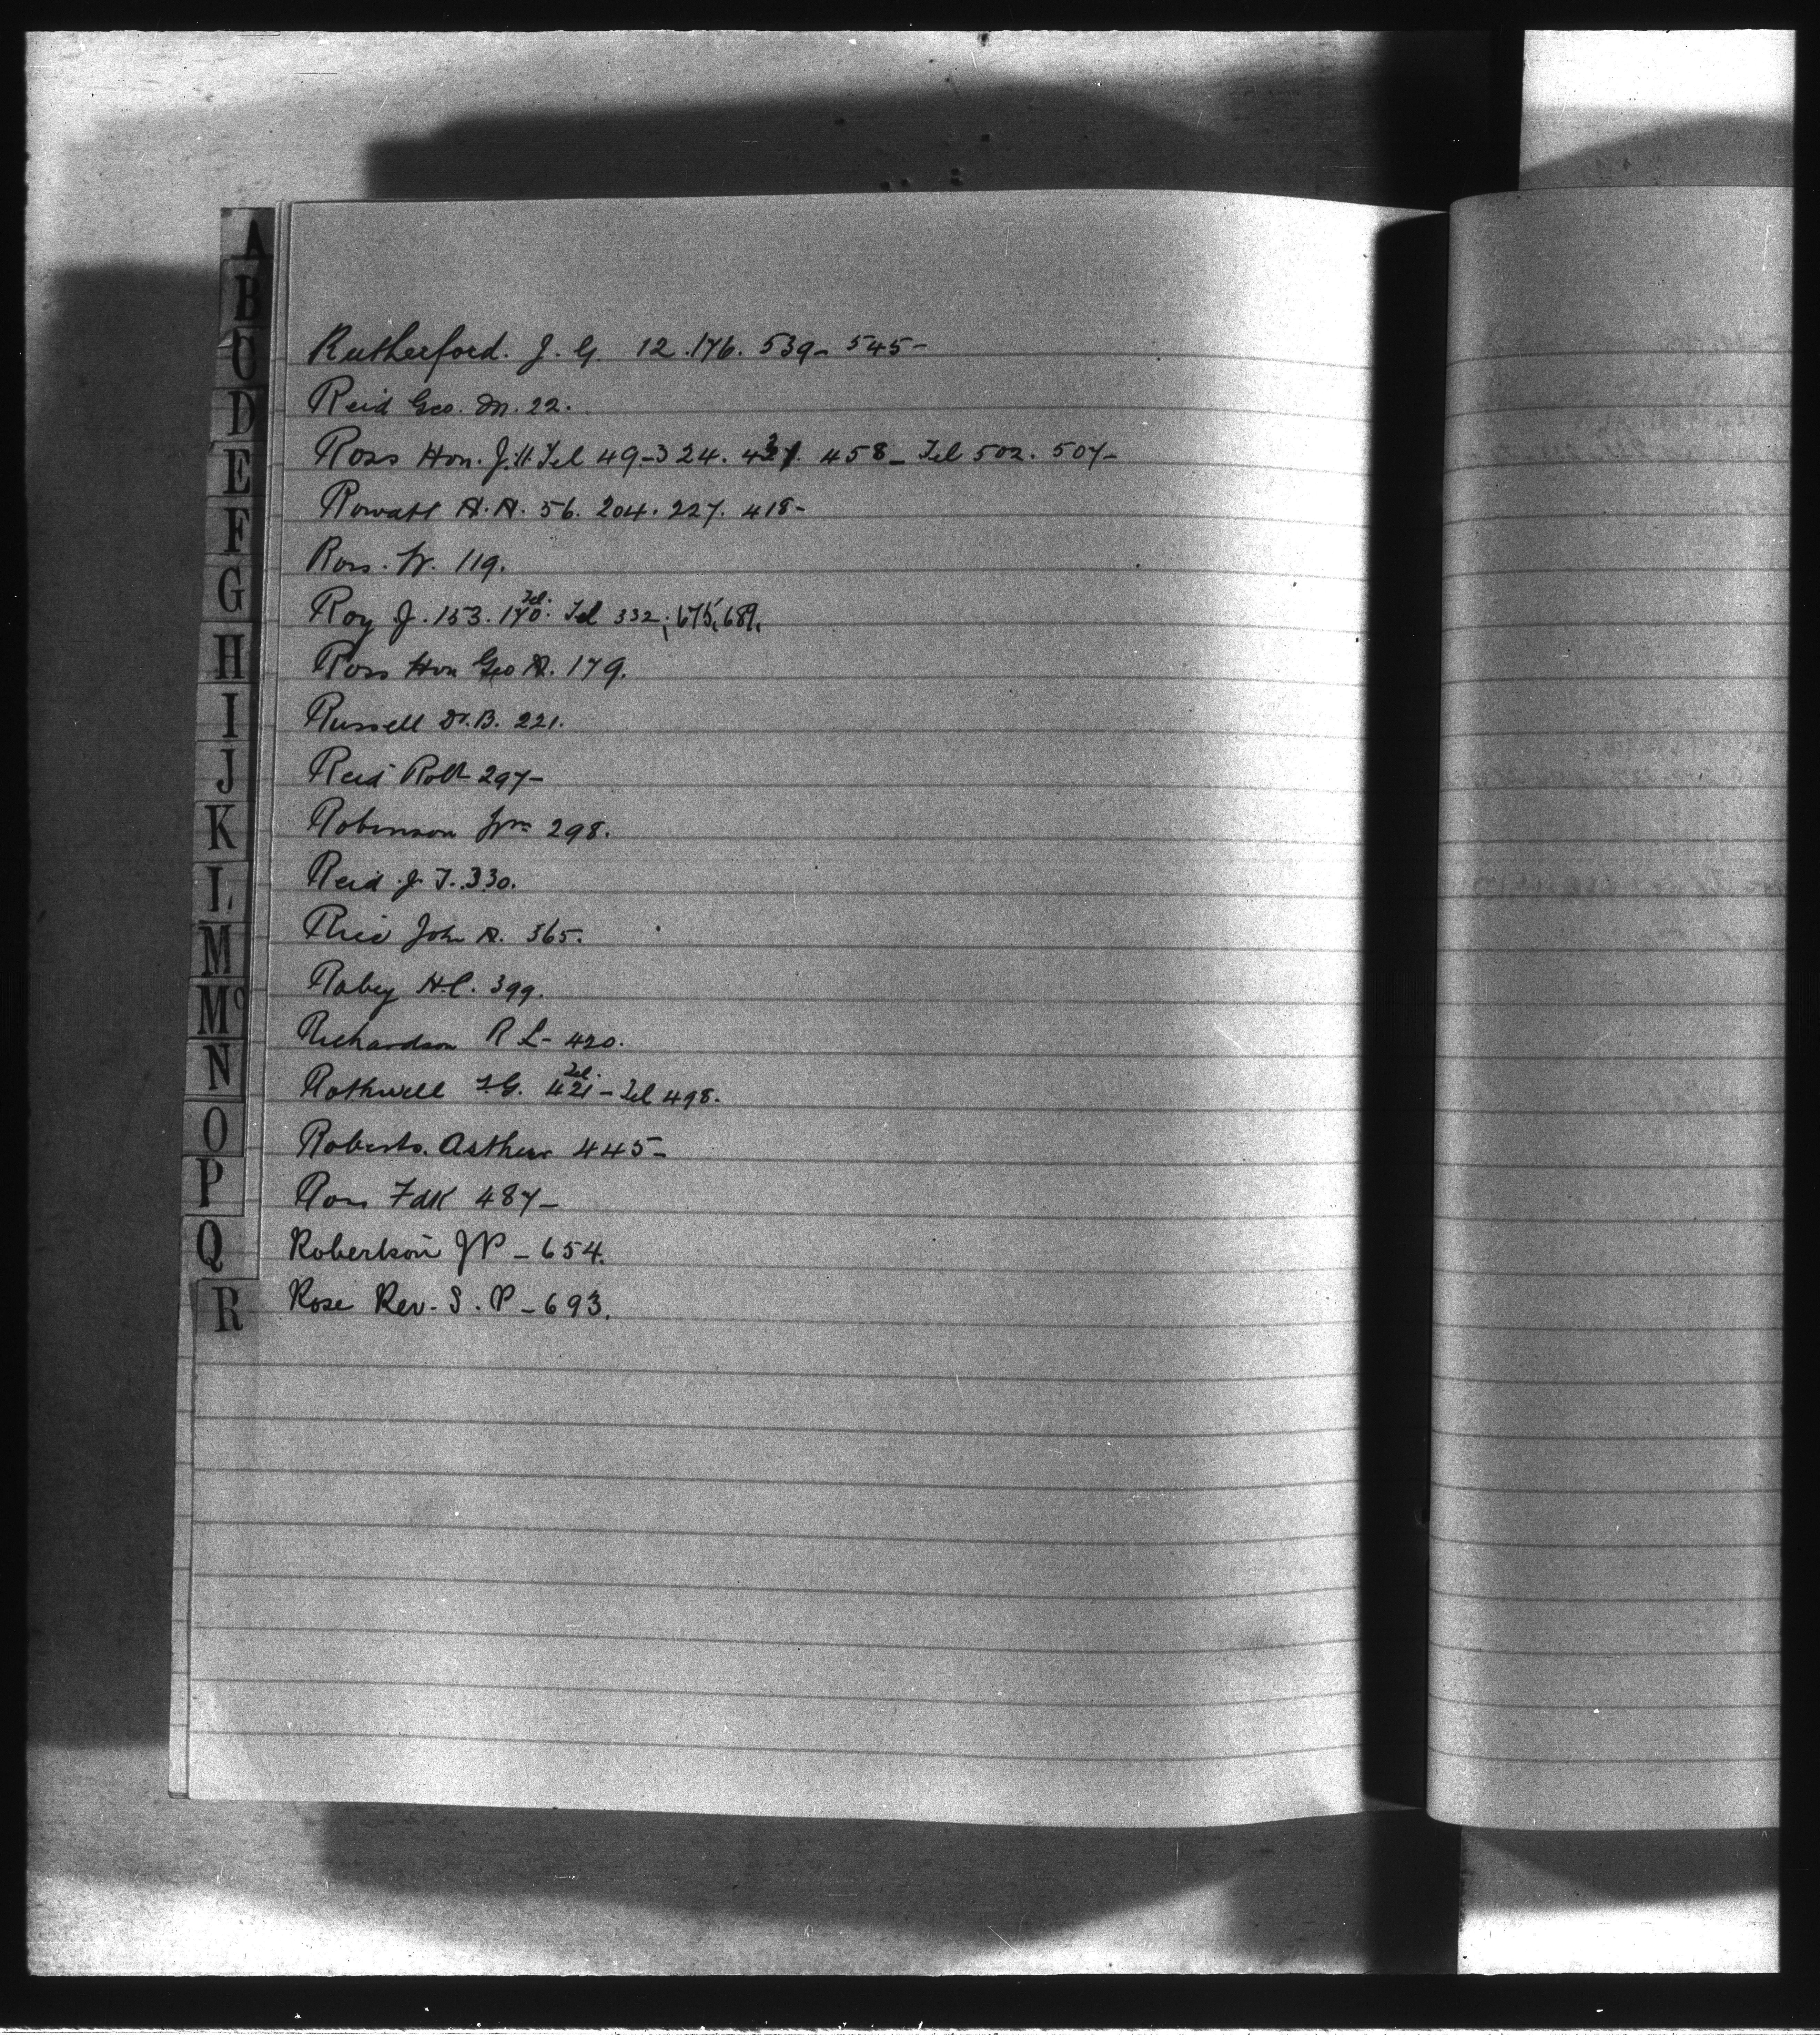 A
B
C
D
E
F
G
H
I
J
K
L
M
Mc
N
O
P
Q
R
Rutherford. J. G. 12. 176. 539- 545-
Reid Geo. M. 22.
Ross Hon. J. H Tel 49-324. 458- Tel 502. 507-
Rowatt H. H. 56. 204. 227. 418-
Ross. W. 119.
Roy J. 153. 170. Tel. Tel 332. 675, 689,
Ross Hon Geo 179.
Russell 221.
Reid Robt 297-
Robinson Wm 298.
Reid J. T. 330.
John 365.
Robey H.C. 399.
Richardson R L- 420.
Rothwell 421 Tel. - Tel 498.
Roberts. Arthur 445-
Ross Fdk 487-
Robertson JP - 654.
Rose Rev. S. P - 693.